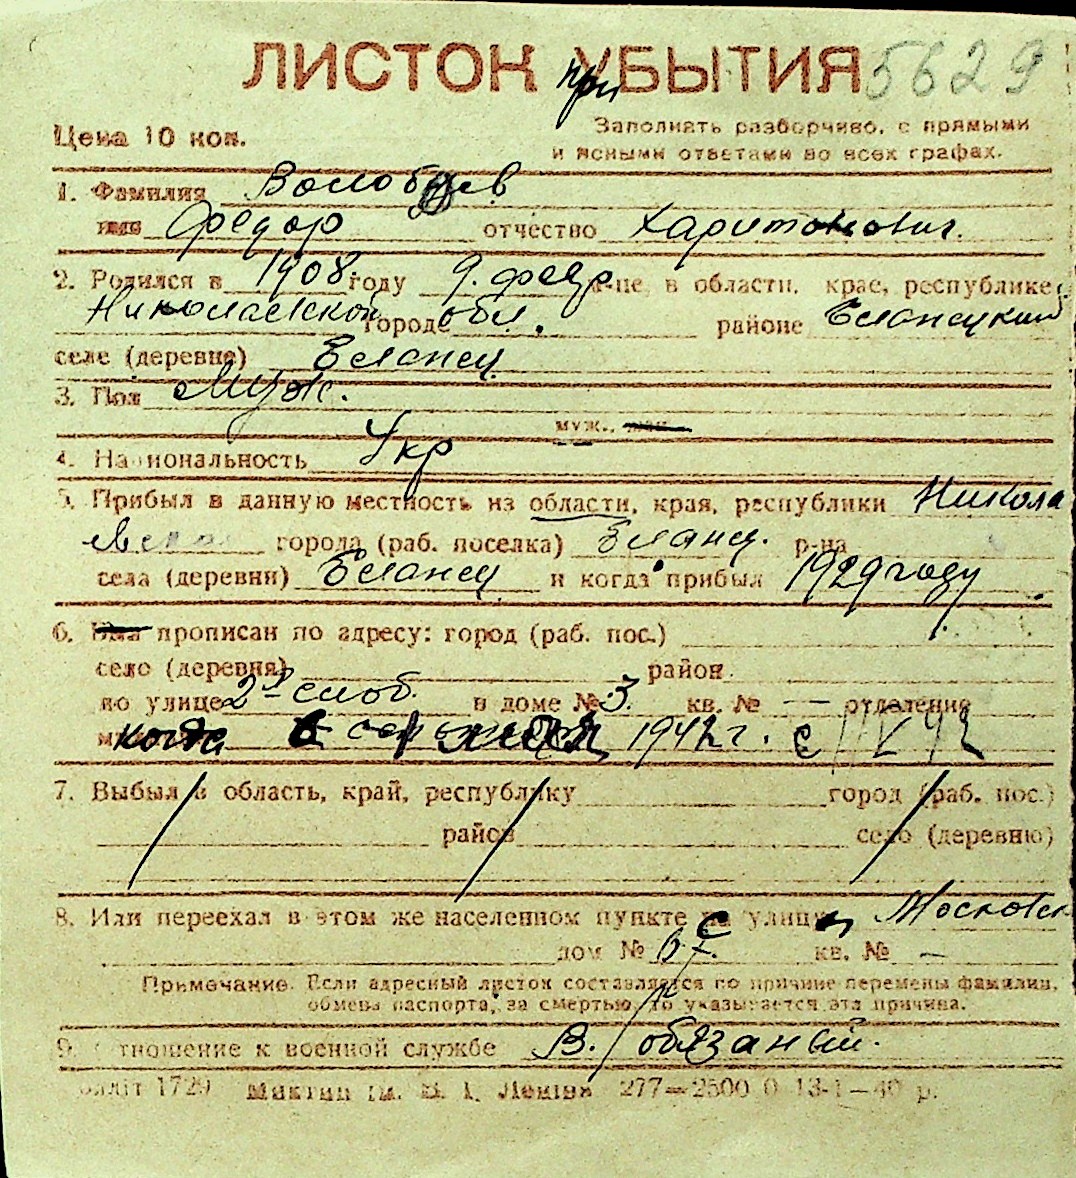 ЛИСТОК УБЫТИЯ 5629
при
Цена 10 коп.
Заполнять разборчиво, с прямыми
и ясными ответами во всех графах.
1. Фамилия
имя Федор отчество Харитонович.
2. Родился в 1908. году 9. февр. в области, крае, республике
Николаевской городе обл. районе Еланецкий
селе (деревне) Еланец
3. Пол Муж.
муж.,
4. Национальность Укр
5. Прибыл в данную местность из области, края, республики Никола
евской города (раб. поселка) Еланец. р-на
села (деревни) Еланец и когда прибыл 1929 году
6. прописан по адресу: город (раб. пос.)
село (деревня) район
по улице 2я слоб. в доме № 3. кв. № — отделения
когда 1942 г. с
7. Выбыл в область, край, республику город (раб. пос.)
район село (деревню)
8. Или переехал в этом же населенном пункте с улицы Московск
дом № кв. № —
Примечание. Если адресный листок составляется по причине перемены фамилии,
обмена паспорта, за смертью, то указывается эта причина.
9. Отношение к военной службе В. обязаный.
1729 ім. В. І. Леніна 277—2500 0 13-1—40 р.